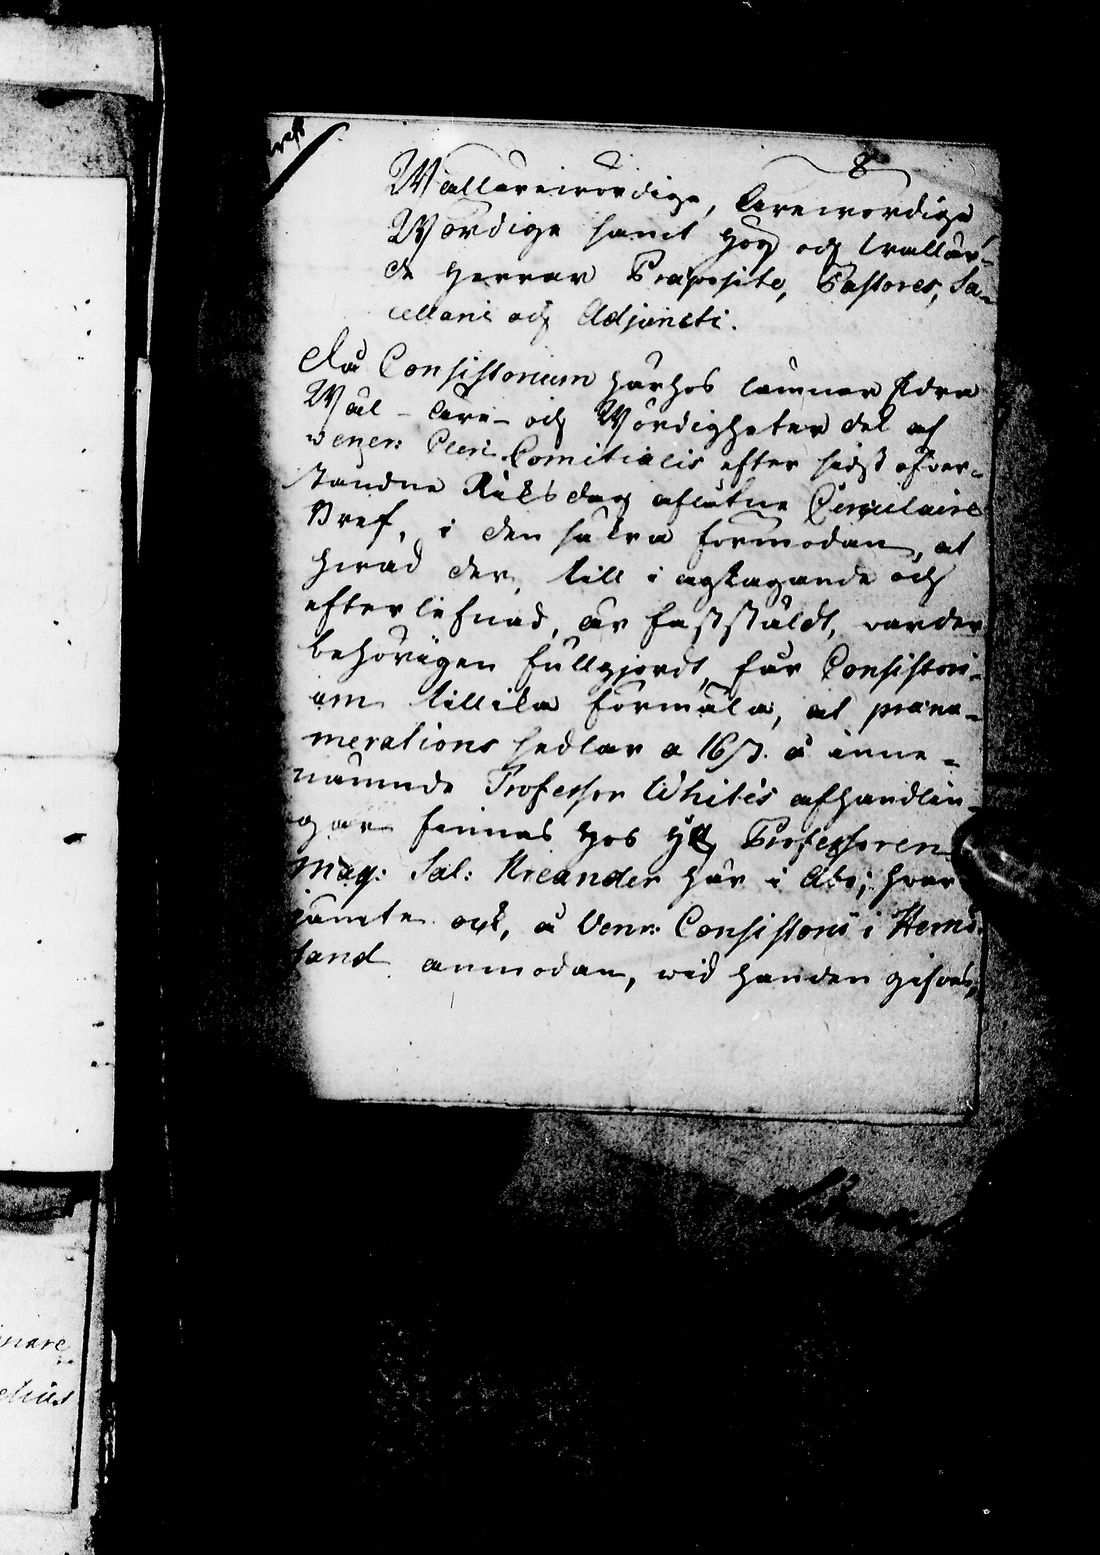 8
Wällärewördige, Ärewördige
Wördige samt Hög och Wällär-
de Herrar Præposite, Pastores, Sa-
cellani och Adjuncti.
Då Consistorium härhos lämnar Edra
Wäl- Äre- och Wördigheter del af
Vener: Cleri Comitialis efter sidst öfver-
ståndne Riksdag aflåtne Circulaire
Bref, i den säkra förmodan, at
hwad der till i agttagande och
efterlefnad är faststäldt, varder
behörigen fullgjordt, får Consistori-
um tillika förmäla, at prænu-
merations sedlar a 16 s. å inne-
nämnde Professor White's afhandlin-
gar finnas hos H. Professoren
Mag: Sal: Kreander här i Åbo; hvar
jämte ock, å Vener: Consistorii i Hernö-
sand anmodan, wid handen gifves,
nare
elius